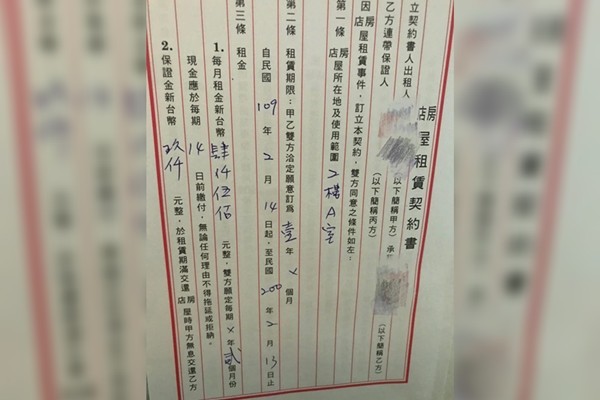 房屋
店屋租賃契約書
立契約書人出租人 (以下簡稱甲方) 承
(以下簡稱乙方)
乙方連帶保證人 (以下簡稱丙方)
因房屋
店屋租賃事件,訂立本契約,雙方同意之條件如左:
第一條 房屋
店屋所在地及使用範圍 2樓A室
第二條 租賃期限:甲乙雙方洽定願意訂為 壹 年 x 個月
自民國 109 年 2 月 14 日起,至民國 200 年 2 月 13 日止
第三條 租金
1. 每月租金新台幣 肆仟伍佰 元整,雙方願定每期 x 年 貳 個月份
現金應於每期 14 日前繳付,無論任何理由不得拖延或拒納。
2. 保證金新台幣 玖仟 元整,於租賃期滿交還房屋
店屋時甲方無息交還乙方